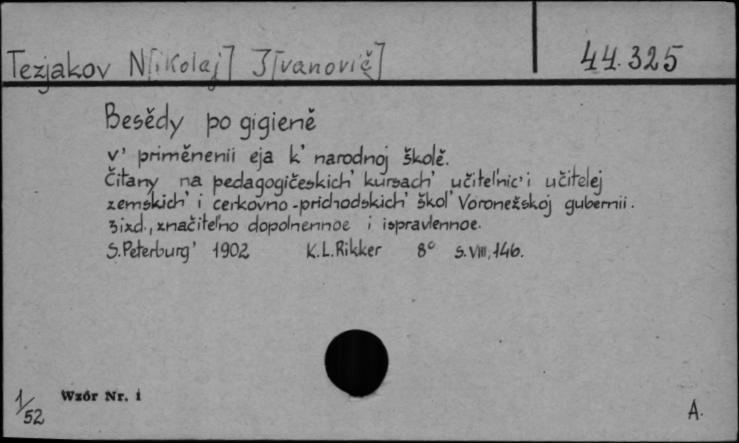 Tezjakov N[ikolaj] I[vanovič]
44.325
Besědy po gigieně
v' priměnenii eja k' narodnoj školě.
Čitany na pedagogičeskich' kursach' učitel'nic' i učitelej
zemskich' i cerkovno-prichodskich' škol' Voronežskoj gubernii.
3izd., značitel'no dopolnennoe i ispravlennoe.
S. Peterburg' 1902 K.L.Rikker 8° s. VIII, 146.
1/52
Wzór Nr. 1
A.